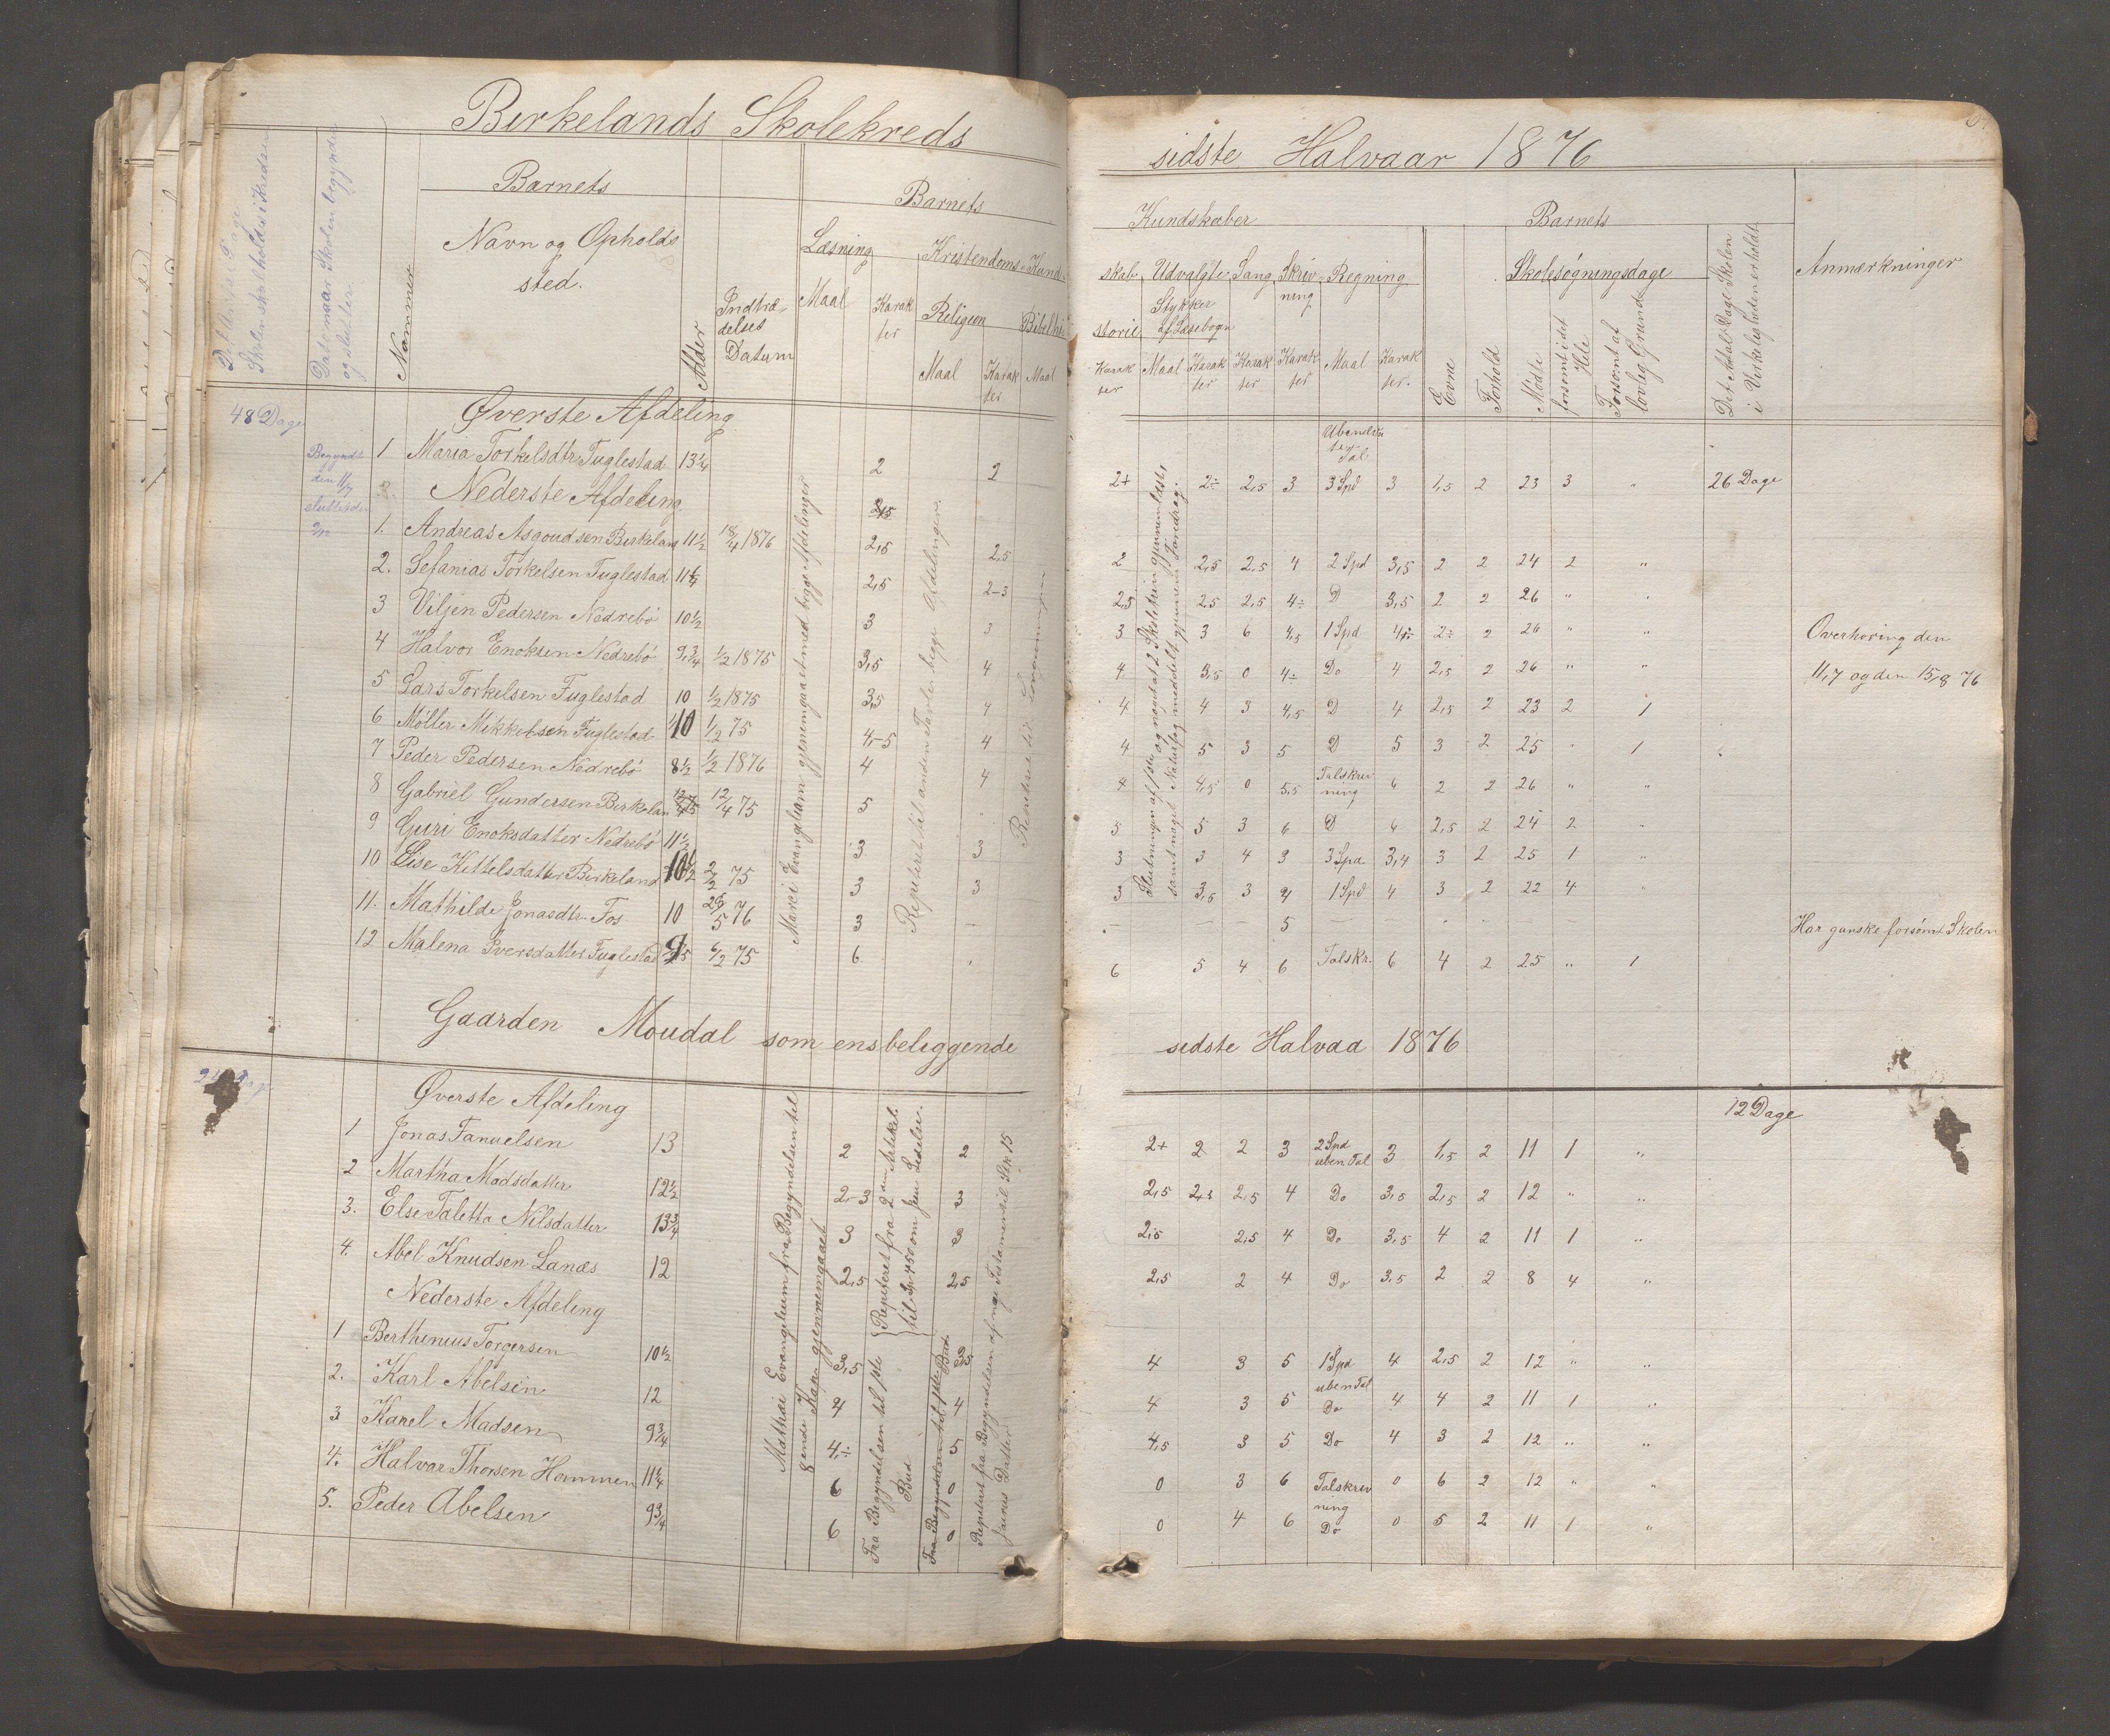 Birkelands Skolekreds
sidste Halvaar 1876
Det Antal Dage
Skolen skal holdes i Kredsen
Dato naar Skolen begynder
og slutter
Nummer
Barnets
Navn og Opholds
sted.
Alder
Indtræ-
delses
Datum
Barnets
Læsning
Maal
Karak
ter
Kristendoms-Kund-
Religion
Maal
Karak
ter
Bibelhi-
Maal
Kundskaber
skab
storie
Karak
ter
Udvalgte
Stykker
af Læsebogn
Maal
Karak
ter
Sang
Karak
ter
Skriv
ning
Karak
ter
Regning
Maal
Karak
ter.
Barnets
Evne
Forhold
Skolesøgningsdage
Mødte
forsømt i det
Hele
Forsømt af
lovlig Grunde
Det Antal Dage Skolen
i Virkeligheden erholdt
Anmærkninger
48 Dage
Begyndt
den 11/7
sluttet den
Øverste Afdeling
1 Maria Torkelsdtr Fuglestad 13 1/4 2 2
Ubenævn
te Tal
2+ 2÷ 2,5 3 3 Spd 3 1,5 2 23 3 " 26 Dage
Nederste Afdeling
1. Andreas Asgoudsen Birkeland 11 1/2 18/4 1876 2,5 2,5
2 2,5 2,5 4 2 Spd 3,5 2 2 24 2 "
2. Sefanias Torkelsen Fuglestad 11 1/4 2,5 2-3
2,5 2,5 2,5 4÷ D 3,5 2 2 26 " "
3 Viljen Pedersen Nedrebö 10 1/2 3 3
3 3 6 4,5 1 Spd 4÷ 2÷ 2 26 " " Overhøring den
4 Halvor Enoksen Nedrebö 9 3/4 1/2 1875 3,5 4
4 3,5 0 4÷ Do 4 2,5 2 26 " " 11/7 og den 15/8 76
5 Lars Torkelsen Fuglestad 10 1/2 1875 3,5 4
4 4 3 4,5 D 4 2,5 2 23 2 1
6 Møller Mikkelsen Fuglestad 10 1/2 75 4-5 4
4 5 3 5 D 5 3 2 25 " 1
7 Peder Pedersen Nedrebö 8 1/2 1/2 1876 4 4
4 4,5 0 5,5 Talskriv
ning 6 2 2 26 " "
8 Gabriel Gundersen Birkelan 12/4 75 5
5 5 3 6 D 6 2,5 2 24 2 "
9 Guri Enoksdatter Nedrebö 11 1/2 3 3
3 3 4 3 3 Spd 3,4 3 2 25 1 "
10 Lise Kittelsdatter Birkeland 10 1/2 2/2 75 3 3
3 3,5 3 4 1 Spd 4 3 2 22 4 "
11. Mathilde Jonasdtr. Fos 10 26/5 76 3 –
5 Har ganske forsømt Skolen
12 Malena Iversdatter Fuglestad 9 6/2 75 6
6 5 4 6 Talskr. 6 4 2 25 " 1
Marci Evangelium gjennemgaaet med begge Afdelinger
Repeteret til anden Tavle begge Afdelinger.
Slutningen af 1ste og noget af 2 Skoletrin gjennemlæst,
samt noget Naturfag meddelt gjennem Foredrag.
Gaarden Moudal som ensbeliggende
sidste Halvaa 1876
12 Dage
Øverste Afdeling
1 Jonas Fanuelsen 13 2 2
2+ 2 2 3 2 Spd
uben Tal 3 1,5 2 11 1 "
2 Martha Madsdatter 12 1/2 2-3 3
2,5 2,5 4 Do 3,5 2,5 2 12 " "
3. Else Taletta Nilsdatter 13 3/4 3 3
2,5 2,5 4 Do 3,5 4 2 11 1 "
4. Abel Knudsen Lanæs 12 2,5 2,5
2,5 2 4 Do 3,5 2 2 8 4 "
Nederste Afdeling
1 Berthinius Torgersen 10 1/2 3,5
4 3 5 1 Spd
uben Tal 4 2,5 2 12 " "
2. Karl Abelsen 12 4 4
4 3 5 Do 4 4 2 11 1 "
3 Karel Madsen 9 3/4 4÷ 5
4,5 3 5 Do 4 3 2 12 " "
4. Halvar Thorsen Hommen 11 1/4 6 0
0 3 6 Talskriv
ning 0 6 2 12 " "
5. Peder Abelsen 9 3/4 6 0
0 4 6 Do 0 5 2 11 1 "
Mathæi Evangelium fra Begyndelsen til
8 ende Kap. gjennemgaaet
Repeteret fra 2den Artikel
Fra Begyndelsen til 1ste
Bud
Fra Begyndelsen til 1ste Bud
Repetert fra Begyndelsen af nye Testamente til Stk 15
Jairus Datter